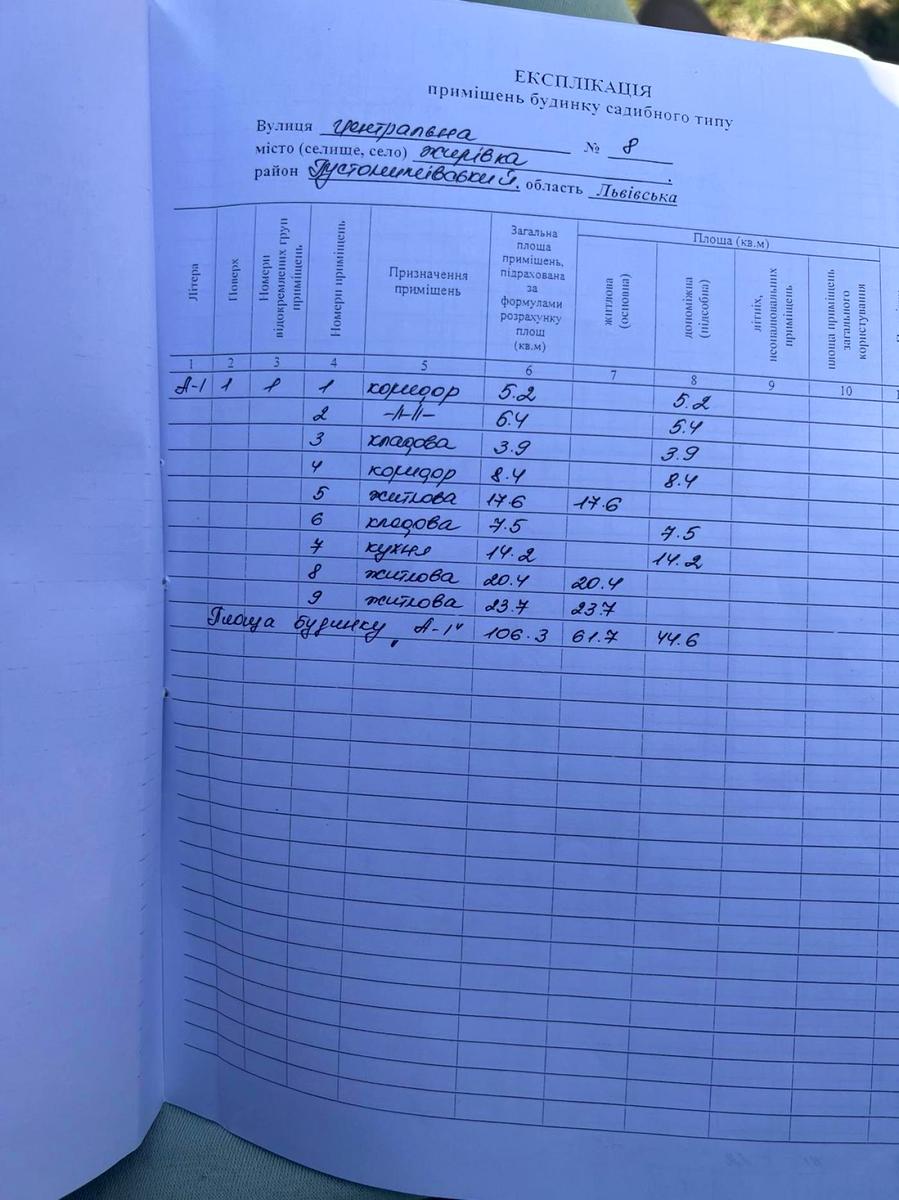 ЕКСПЛІКАЦІЯ
приміщень будинку садибного типу
Вулиця центральна № 8
місто (селище, село) Жирівка.
район Пустомитівський, область Львівська
Літера Поверх Номери відокремлених груп приміщень Номери приміщень Призначення приміщень Загальна площа приміщень, підрахована за формулами розрахунку площ (кв.м) Площа (кв.м)
житлова (основна) допоміжна (підсобна) літніх, неопалювальних приміщень площа приміщень загального користування
1 2 3 4 5 6 7 8 9 10
А-1 1 1 1 коридор 5.2 5.2
2 -//-//- 5.4 5.4
3 кладова 3.9 3.9
4 коридор 8.4 8.4
5 житлова 17.6 17.6
6 кладова 7.5 7.5
7 кухня 14.2 14.2
8 житлова 20.4 20.4
9 житлова 23.7 23.7
Площа будинку „А-1" 106.3 61.7 44.6